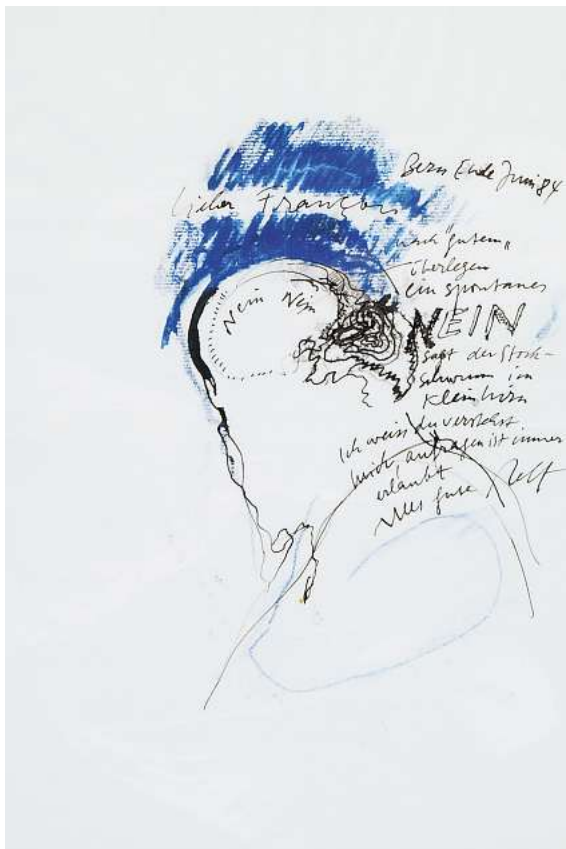 Bern Ende Juni 84
lieber François
nach "gutem"
überlegen
ein spontanes
NEIN
Nein Nein
sagt der Stock-
schwumm im
Kleinhirn
Ich weiss du verstehst
mich, anfragen ist immer
erlaubt
Alles gute